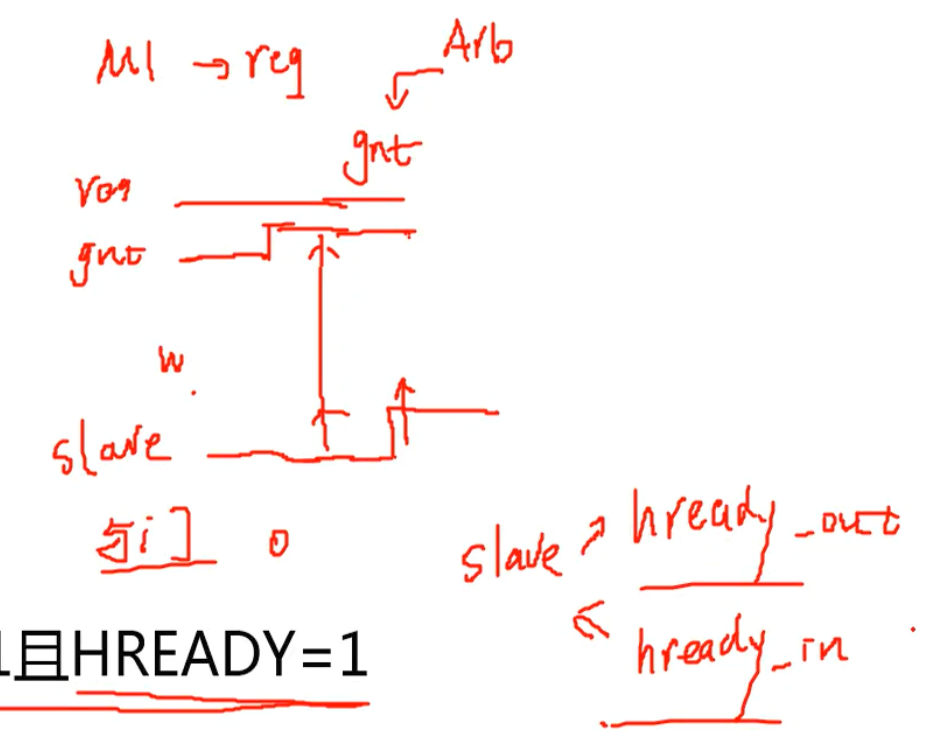 M1 → req
Arb
gnt
req
gnt
w.
slave
与门 0
slave
hready_out
hready_in
1且HREADY=1